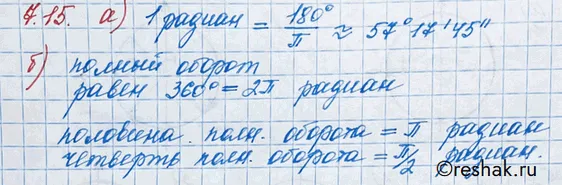 7.15. а) 1 радиан = 180°/π ≈ 57°17'45"
б) полный оборот
равен 360° = 2π радиан
половина полн. оборота = π радиан
четверть полн. оборота = π/2 радиан.
Reshak.ru